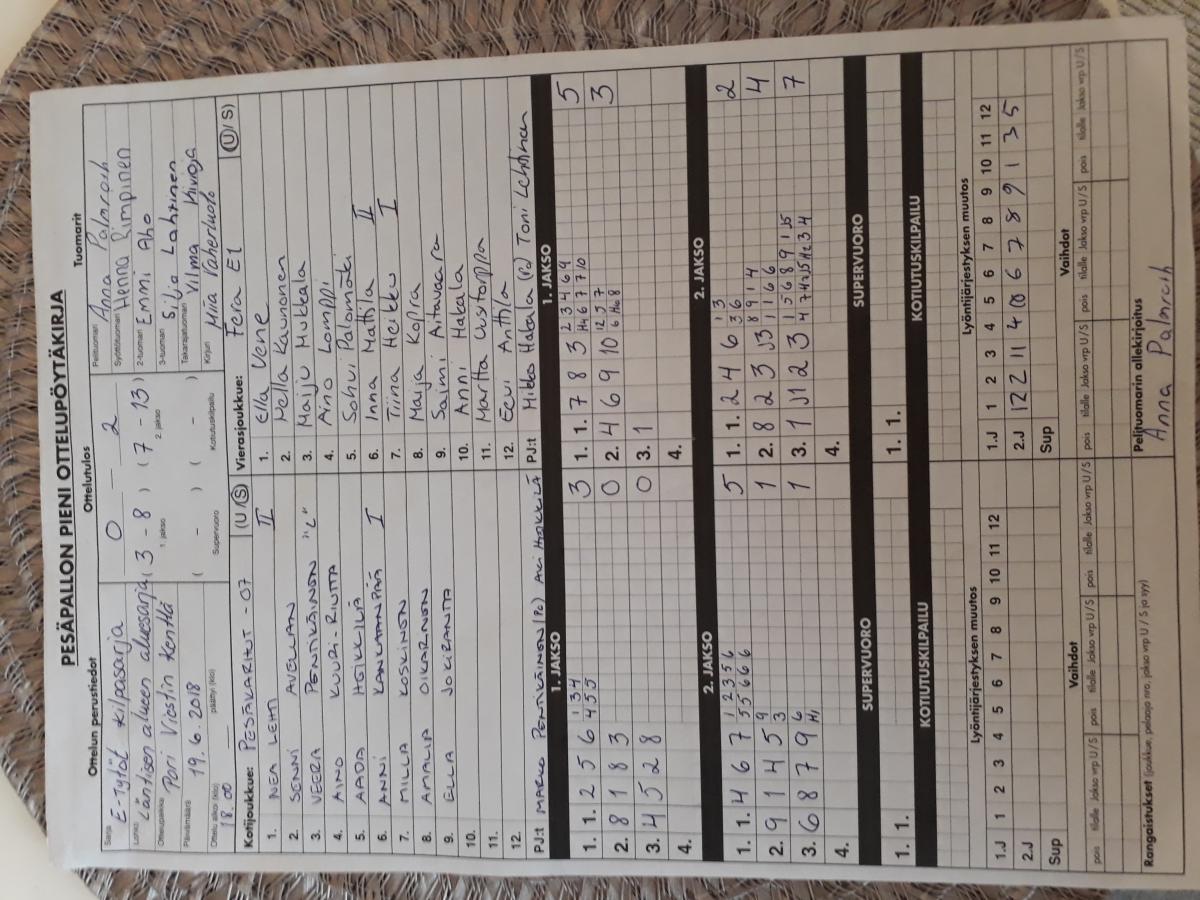 PESÄPALLON PIENI OTTELUPÖYTÄKIRJA
Ottelun perustiedot
Sarja
E-Tytöt kilpasarja
Lohko
Läntisen alueen aluesarja
Ottelupaikka
Pori Viestin kenttä
Päivämäärä
19.6.2018
Ottelu alkoi (klo)
18.00
päättyi (klo)
Ottelutulos
0 — 2
( 3 - 8 ) ( 7 - 13 )
1. jakso 2. jakso
( - ) ( - )
Supervuoro Kotiutuskilpailu
Tuomarit
Pelituomari
Anna Palmroth
Syöttötuomari
Henna Rimpinen
2-tuomari
Emmi Aho
3-tuomari
Silja Lahtinen
Takarajatuomari
Vilma Kivioja
Kirjuri
Miia Vaheriluoto
Kotijoukkue: PESÄKARHUT -07 (U/S)
1. NEA LEHTI II
2. SENNI AVELLAN
3. VEERA PENTIKÄINEN "C"
4. AINO KUUSI-RIUTTA
5. AADA HEIKKILÄ
6. ANNI KANKAANPÄÄ I
7. MILLA KOSKINEN
8. AMALIA OIKARINEN
9. ELLA JOKIRANTA
10.
11.
12.
PJ:t MARKO PENTIKÄINEN (PC) AKI HEIKKILÄ
Vierasjoukkue: Fera E1 (U/S)
1. Ella Vene
2. Hella Kaunonen
3. Maiju Mukkala
4. Aino Lomppi
5. Sohvi Palomäki
6. Inna Mattila II
7. Tiina Heikku I
8. Maija Kopra
9. Saimi Aitavaara
10. Anni Hakala
11. Martta Uusitorppa
12. Eevi Anttila
PJ:t Mikko Hakala (Pc) Toni Lehtinen
1. JAKSO
1. 1. 2 5 6 1 3 4 3
4 5 5
2. 8 1 8 3 0
3. 4 5 2 8 0
4.
1. JAKSO
1. 1. 7 8 3 2 3 4 6 9 5
H4 6 7 7 10
2. 4 6 9 10 12 5 7 3
6 H6 8
3. 1
4.
2. JAKSO
1. 1. 4 6 7 1 2 3 5 6 5
5 5 6 6 6
2. 9 1 4 5 9 1
3
3. 6 8 7 9 6 1
H1
4.
2. JAKSO
1. 1. 2 4 6 1 3 2
3 6
2. 8 2 3 J3 8 9 1 4 4
1 1 6 6
3. 1 J1 2 3 1 5 6 8 9 1 J5 7
4 7 4 J5 H2 3 4
4.
SUPERVUORO
1. 1.
SUPERVUORO
1. 1.
KOTIUTUSKILPAILU
KOTIUTUSKILPAILU
Lyöntijärjestyksen muutos
1.J 1 2 3 4 5 6 7 8 9 10 11 12
2.J
Sup
Lyöntijärjestyksen muutos
1.J 1 2 3 4 5 6 7 8 9 10 11 12
2.J 12 11 4 10 6 7 8 9 1 3 5
Sup
Vaihdot
pois tilalle Jakso vrp U/S pois tilalle Jakso vrp U/S pois tilalle Jakso vrp U/S
Vaihdot
pois tilalle Jakso vrp U/S pois tilalle Jakso vrp U/S pois tilalle Jakso vrp U/S
Rangaistukset (joukkue, pelaaja nro, jakso vrp U / S ja syy)
Pelituomarin allekirjoitus
Anna Palmroth